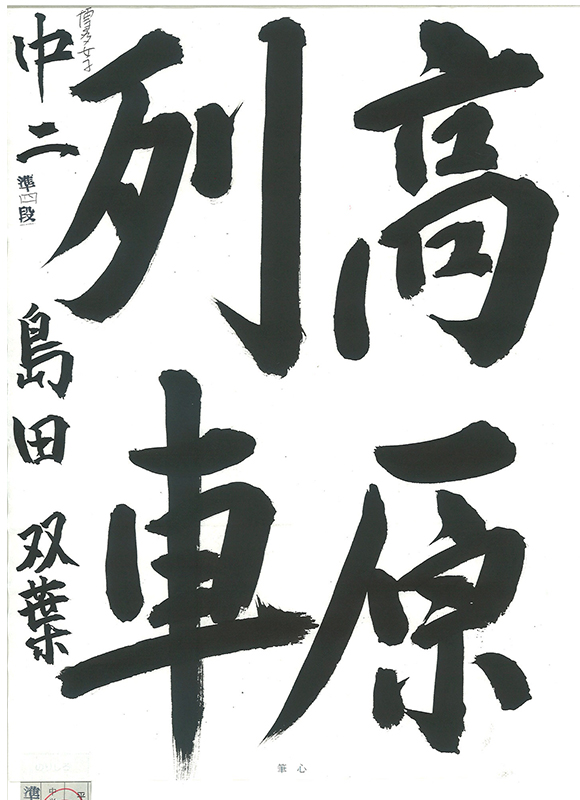 高原
列車
中二 準四段 島田 双葉
博多女子
心筆
準 中 平